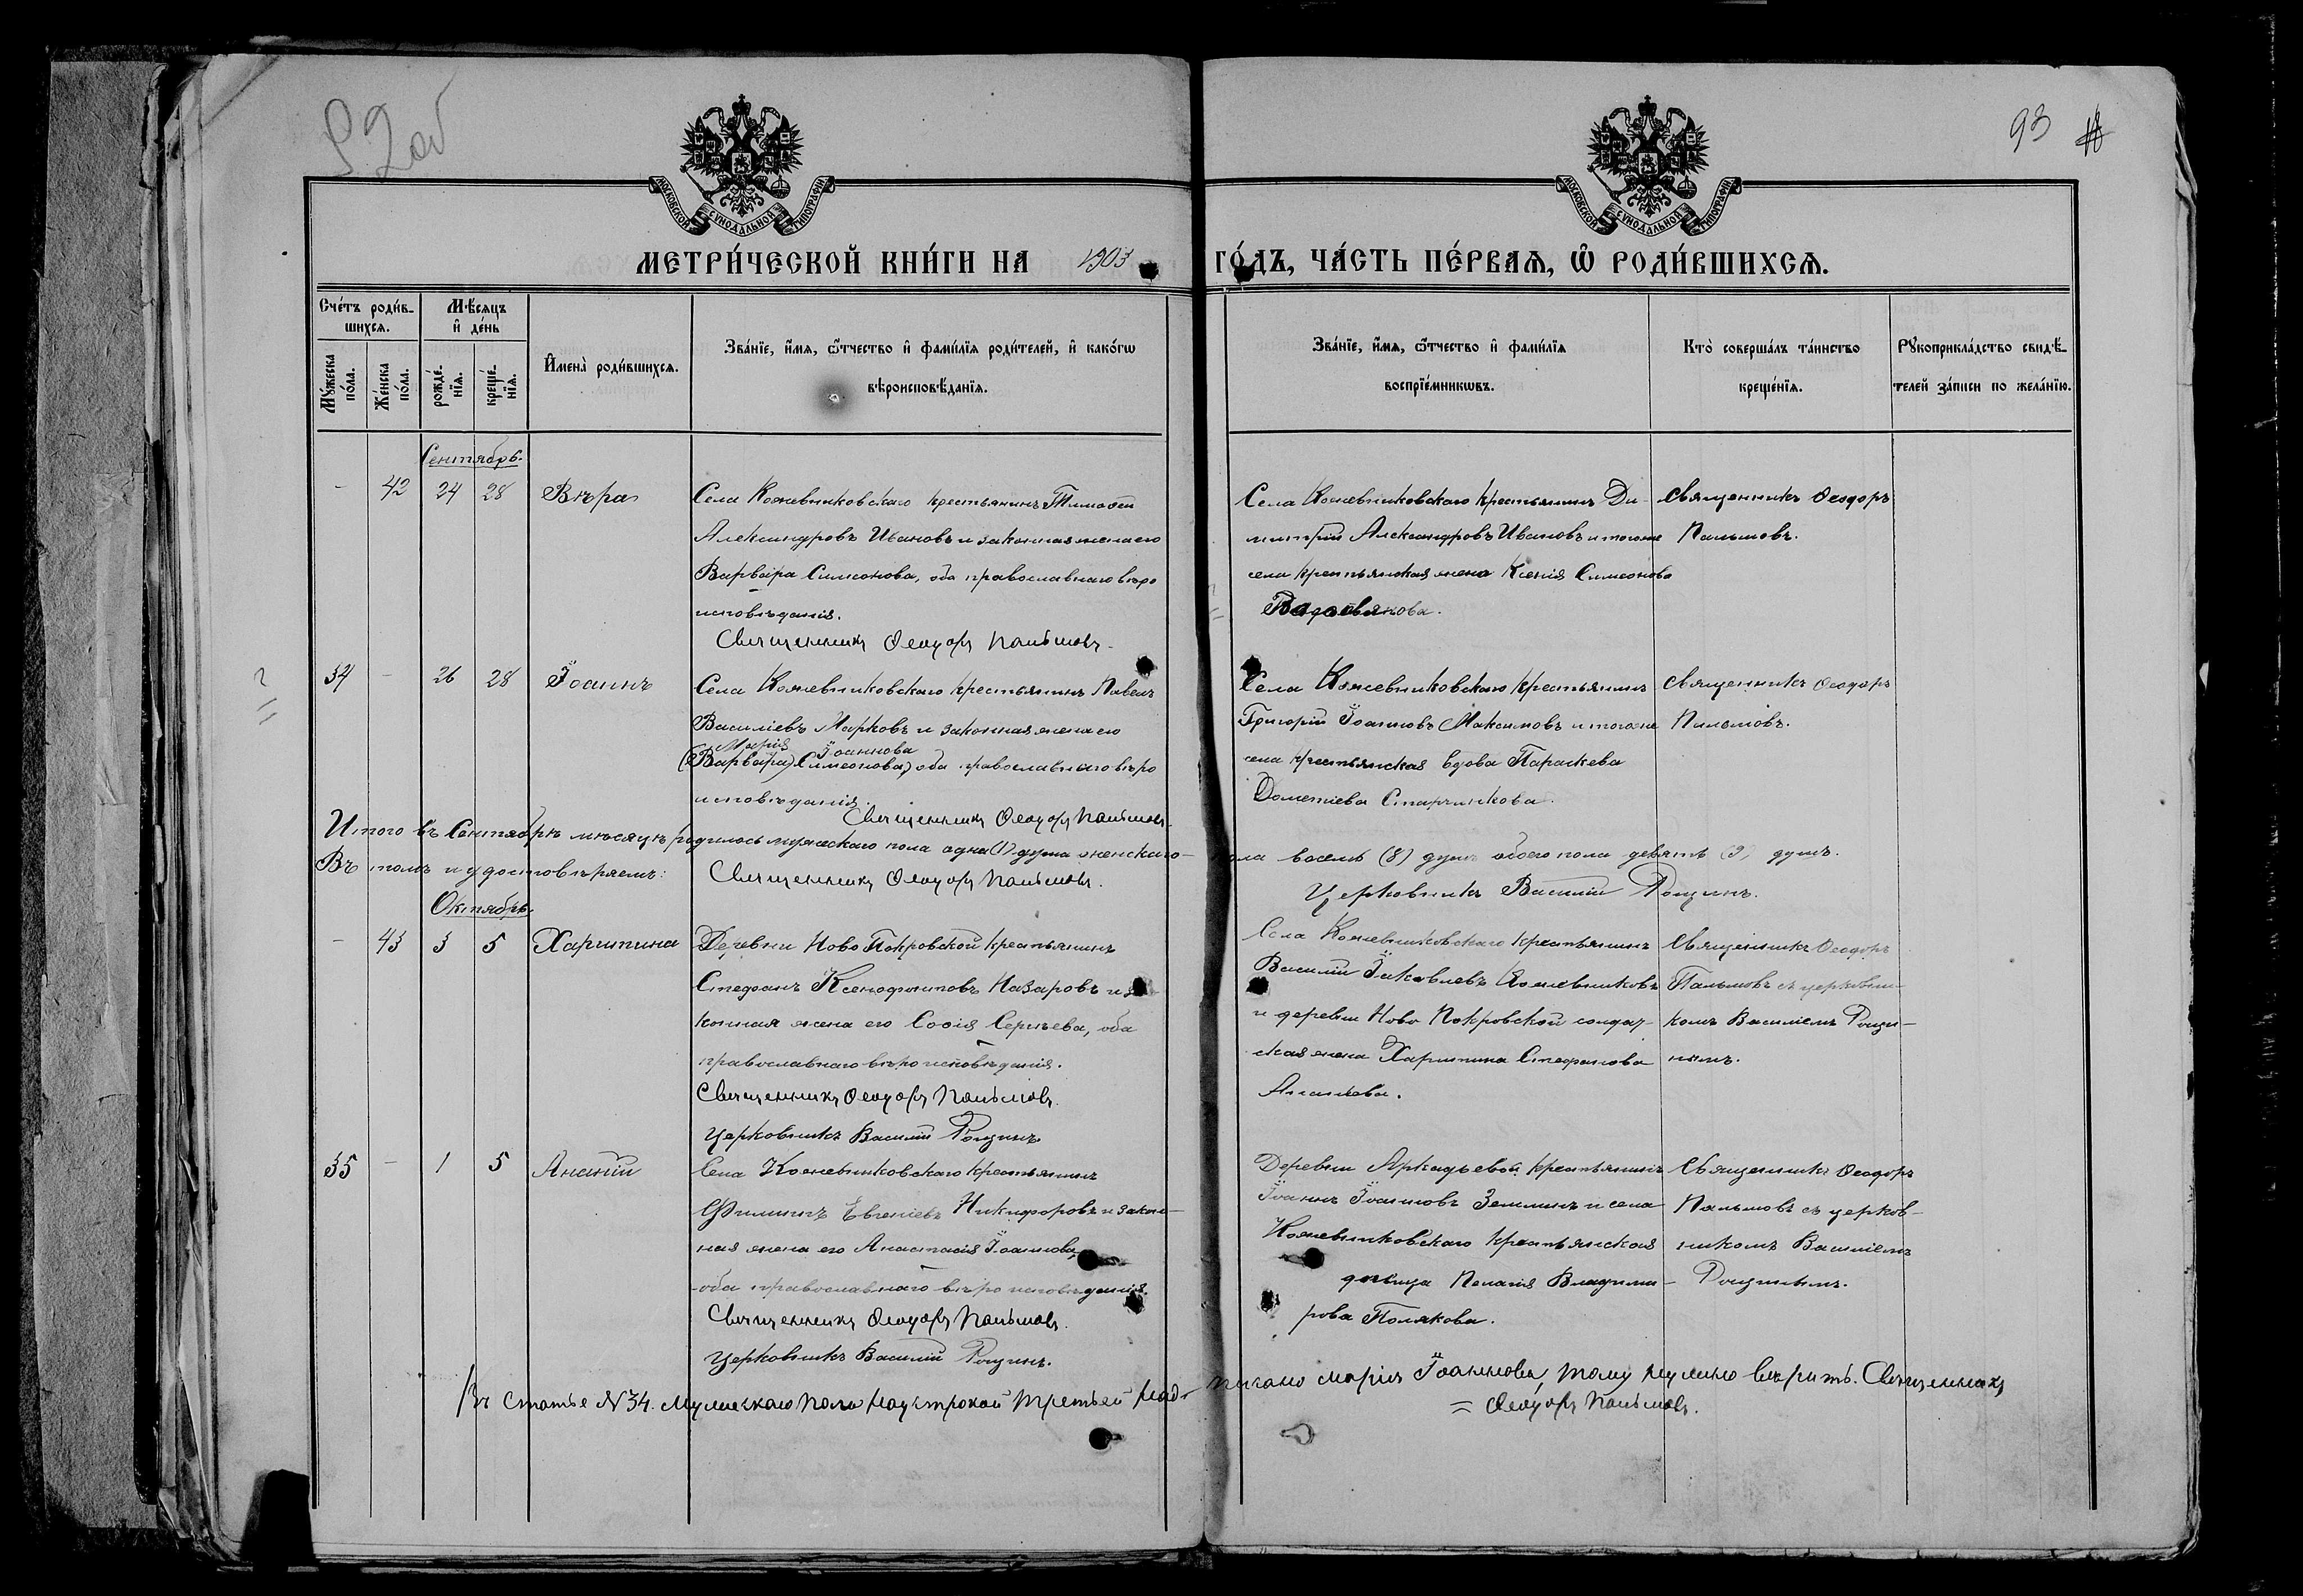 92об
93
МОСКОВСКОЙ СѴНОДАЛЬНОЙ ТИПОГРАФІИ
МОСКОВСКОЙ СѴНОДАЛЬНОЙ ТИПОГРАФІИ
МЕТРИ́ЧЕСКОЙ КНИ́ГИ НА 1903 ГО́ДЪ, ЧА́СТЬ ПЕ́РВАѦ, Ѡ҆ РОДИ́ВШИХСѦ.
Сче́тъ роди́в-
шихсѧ.
Мꙋ́жеска по́ла.
Же́нска по́ла.
Мѣ́сяцъ и҆ де́нь
рожде́-нїѧ.
креще́-нїѧ.
И҆мена̀ роди́вшихсѧ.
Зва́нїе, и҆́мѧ, ѻ҆́тчество и҆ фами́лїѧ роди́телей, и҆ како́гѡ
вѣроисповѣ́данїѧ.
Зва́нїе, и҆́мѧ, ѻ҆́тчество и҆ фами́лїѧ
воспрїе́мникѡвъ.
Кто̀ соверша́лъ та́инство
креще́нїѧ.
Рꙋкоприкла́дство свидѣ́-
телей за́писи по жела́нїю.
Сентябрь.
- 42 24 28 Вѣра
Села Кожевниковскаго крестьянинъ Тимофей
Александровъ Ивановъ и законная жена его
Варвара Симеонова, оба православнаго вѣро
исповѣданія.
Священникъ Ѳеодоръ Пальмовъ.
Села Кожевниковскаго крестьянинъ Ди-
митрій Александровъ Ивановъ и тогоже
села крестьянская жена Ксенія Симеонова
Священникъ Ѳеодоръ
Пальмовъ.
34 - 26 28 Іоаннъ
Села Кожевниковскаго крестьянинъ Павелъ
Василіевъ Марковъ и законная жена его
Марія Іоаннова
(Варвара Симеонова) оба православнаго вѣро
исповѣданія.
Священникъ Ѳеодоръ Пальмовъ.
Села Кожевниковскаго крестьянинъ
Григорій Іоанновъ Максимовъ и тогоже
села крестьянская вдова Параскева
Дометіева Старчикова.
Священникъ Ѳеодоръ
Пальмовъ.
Итого въ Сентябрѣ мѣсяцѣ родилось мужескаго пола одна (1) душа женскаго - пола восемь (8) душъ обоего пола девять (9) душъ.
Въ томъ и удостовѣряемъ: Священникъ Ѳеодоръ Пальмовъ.
Церковникъ Василій Рощинъ.
Октябрь.
- 43 3 5 Харитина
Деревни Ново Покровской крестьянинъ
Стефанъ Ксенофонтовъ Назаровъ и за-
конная жена его Софія Сергѣева, оба
православнаго вѣроисповѣданія.
Священникъ Ѳеодоръ Пальмовъ.
Церковникъ Василій Рощинъ.
Села Кожевниковскаго крестьянинъ
Василій Іаковлевъ Кожевниковъ
и деревни Ново Покровской солдат-
ская жена Харитина Стефанова
Священникъ Ѳеодоръ
Пальмовъ съ церковни-
комъ Василіемъ Рощи-
нымъ.
35 - 1 5 Ананій
Села Кожевниковскаго крестьянинъ
Филиппъ Евгеніевъ Никифоровъ и закон-
ная жена его Анастасія Іоаннова,
оба православнаго вѣроисповѣданія.
Священникъ Ѳеодоръ Пальмовъ.
Церковникъ Василій Рощинъ.
Деревни Аркадьевой крестьянинъ
Іоаннъ Іоанновъ Землинъ и села
Кожевниковскаго крестьянская
дѣвица Пелагія Владими-
рова Полякова.
Священникъ Ѳеодоръ
Пальмовъ съ церков-
никомъ Василіемъ
Рощинымъ.
Въ статье N 34. Мужескаго пола надъ строкой третьей надписано Марія Іоаннова, тому нужно вѣрить. Священникъ
= Ѳеодоръ Пальмовъ.